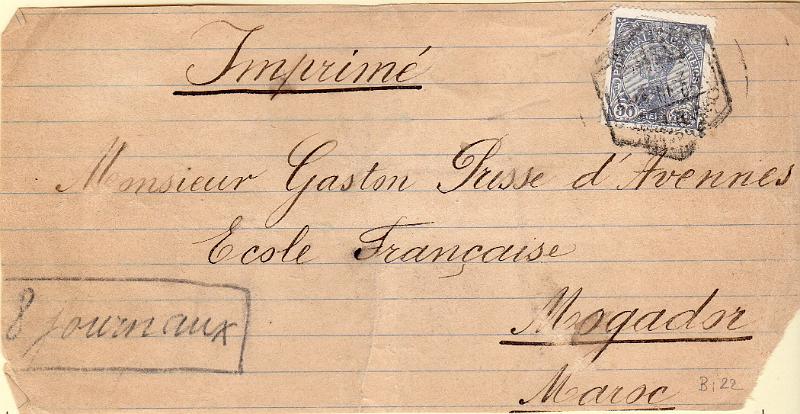 Imprimé
50
Monsieur Gaston Prisse d'Avennes
Ecole Française
8 journaux
Mogador
Maroc
Bi 22